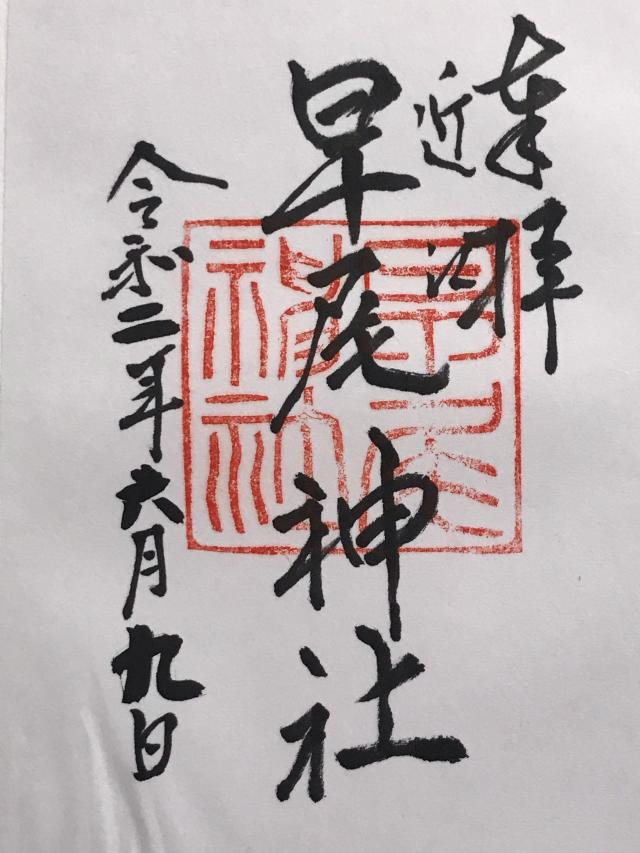 奉拝
近内
早尾神社
令和二年六月九日
早尾神社